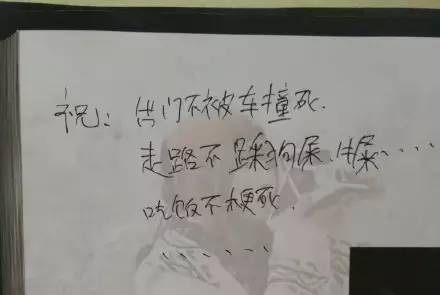 祝：出门不被车撞死.
走路不踩狗屎.牛屎、····
吃饭不梗死.
、、、、、、